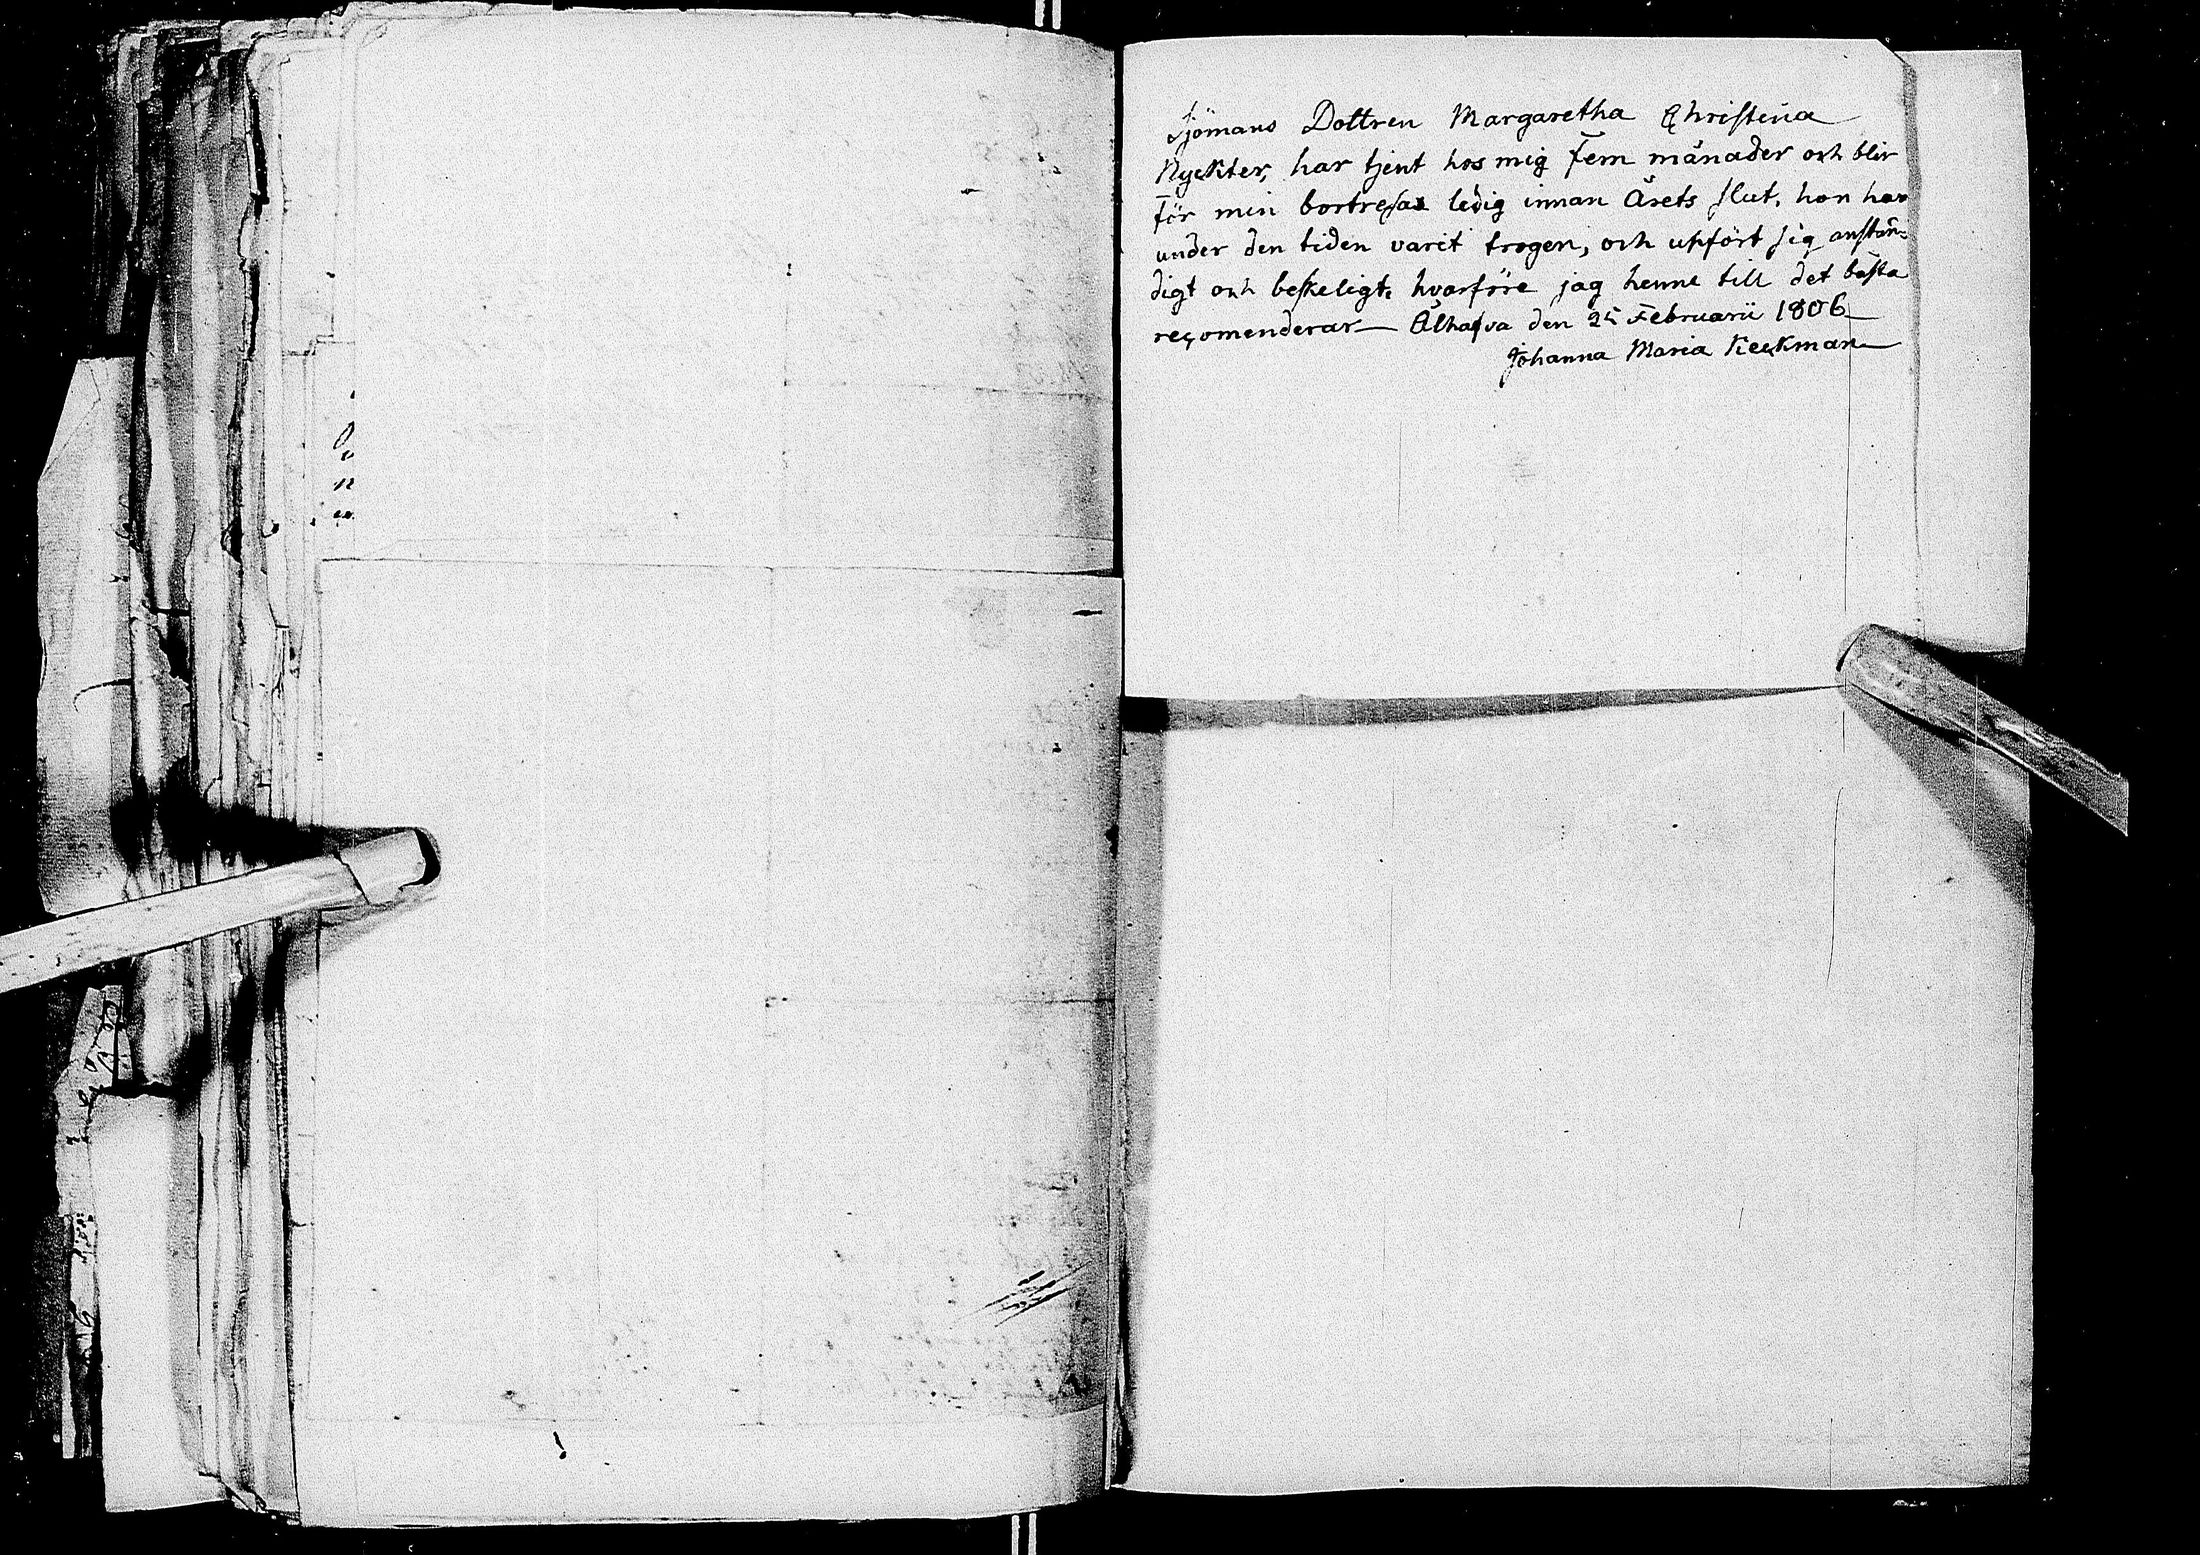 Sjömans Dottren Margaretha Christina
Nyckter, har tjent hos mig Fem månader och blir
För min bortresas ledig innan Årets slut, hon har
under den tiden varit trogen, och upfört sig anstän-
digt och beskeligt, hvarföre jag henne till det bästa
recomenderar— den 25 Februarii 1806—
Johanna Maria Keckman—